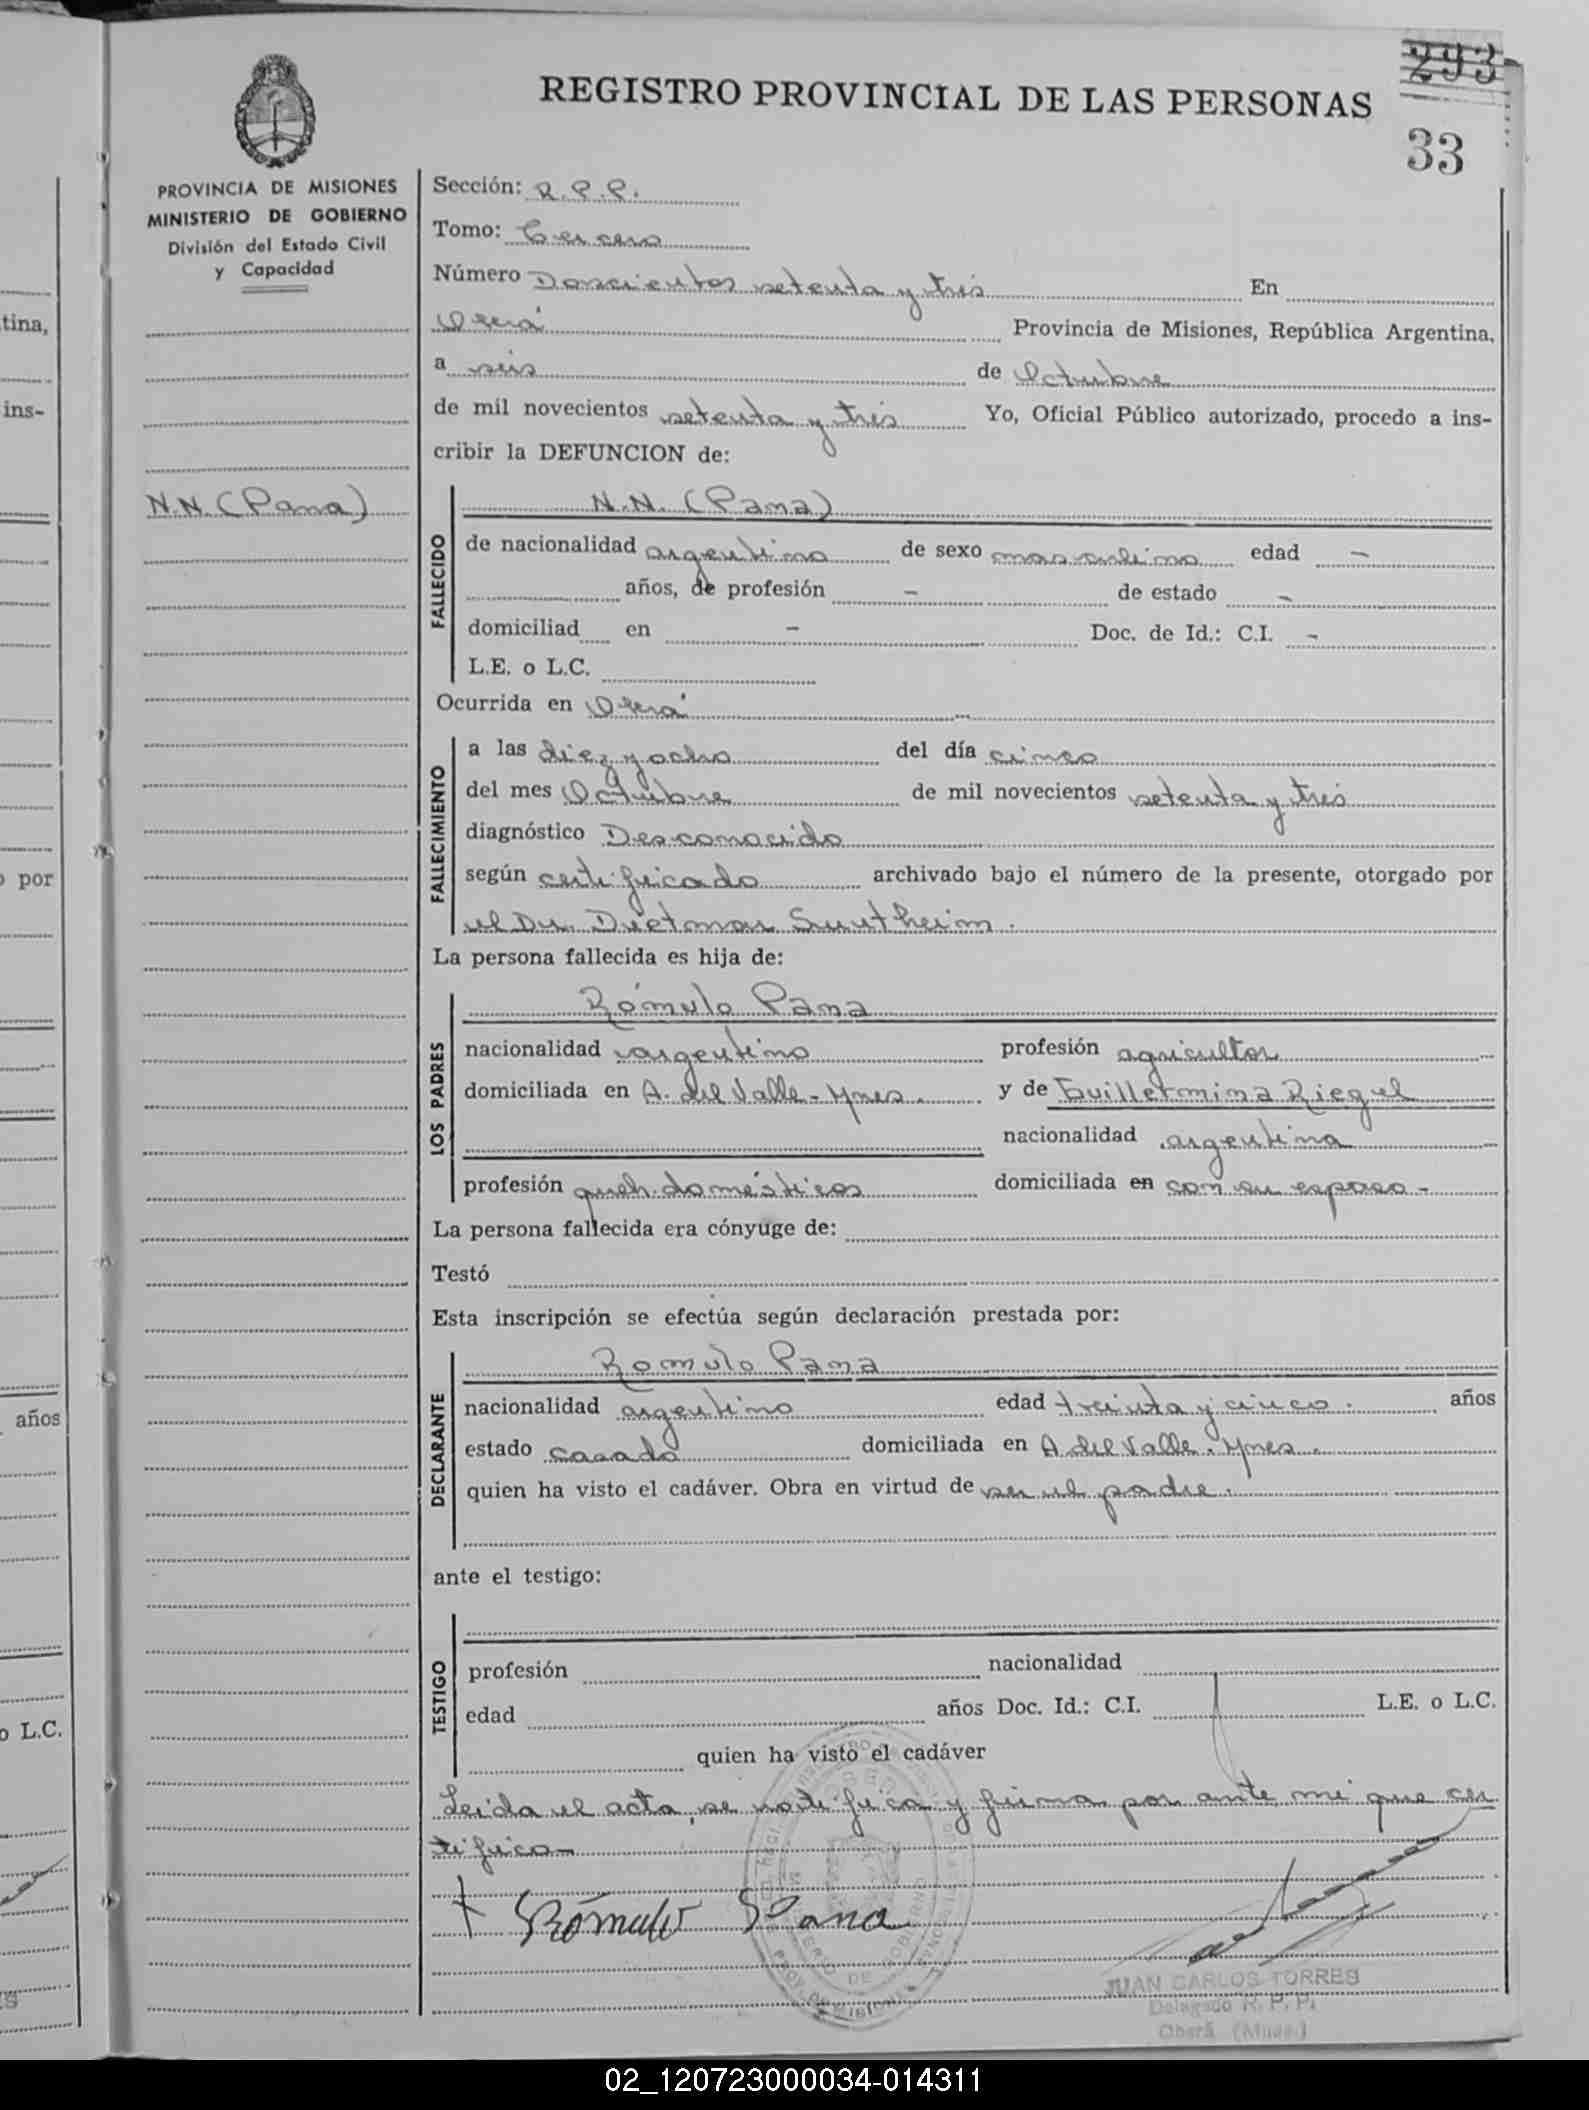 293
REGISTRO PROVINCIAL DE LAS PERSONAS
33
PROVINCIA DE MISIONES
MINISTERIO DE GOBIERNO
División del Estado Civil
y Capacidad
Sección: R.P.P.
Tomo: Tercero
Número Doscientos setenta y tres En
Oberá Provincia de Misiones, República Argentina,
a seis de Octubre
de mil novecientos setenta y tres Yo, Oficial Público autorizado, procedo a ins-
cribir la DEFUNCION de:
N.N. (Pana)
N.N. (Pana)
FALLECIDO
de nacionalidad argentino de sexo masculino edad –
años, de profesión – de estado –
domiciliad en – Doc. de Id.: C.I. –
L.E. o L.C.
Ocurrida en Oberá
FALLECIMIENTO
a las diez y ocho del día cinco
del mes Octubre de mil novecientos setenta y tres
diagnóstico Desconocido
según certificado archivado bajo el número de la presente, otorgado por
el Dr. Dietmar Suntheim.
La persona fallecida es hija de:
LOS PADRES
Rómulo Pana
nacionalidad argentino profesión agricultor
domiciliada en A. del Valle - Ynes. y de Guillermina Riegel
nacionalidad argentina
profesión queh. domésticos domiciliada en con su esposo -
La persona fallecida era cónyuge de:
Testó
Esta inscripción se efectúa según declaración prestada por:
DECLARANTE
Romulo Pana
nacionalidad argentino edad treinta y cinco. años
estado casado domiciliada en A del Valle. Ynes.
quien ha visto el cadáver. Obra en virtud de ser el padre.
ante el testigo:
TESTIGO
profesión nacionalidad
edad años Doc. Id.: C.I. L.E. o L.C.
quien ha visto el cadáver
Leida el acta, se notifica y firma por ante mi que cer
tifico-
Rómulo Pana
JUAN CARLOS TORRES
Delegado R. P. P.
Oberá (Mnes.)
tina,
ins-
o por
años
o L.C.
02_120723000034-014311